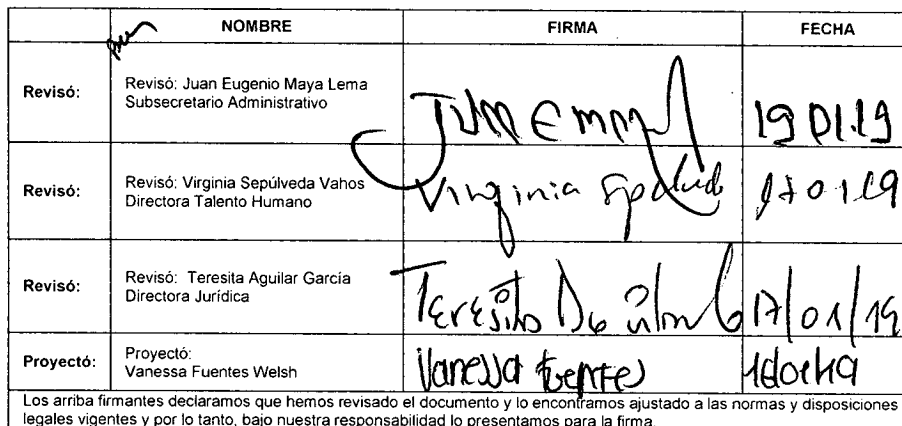 NOMBRE FIRMA FECHA
Revisó: Revisó: Juan Eugenio Maya Lema
Subsecretario Administrativo
19 01.19
Revisó: Revisó: Virginia Sepúlveda Vahos
Directora Talento Humano
Virginia
Revisó: Revisó: Teresita Aguilar García
Directora Jurídica
Teresita 17/01/19
Proyectó: Proyectó:
Vanessa Fuentes Welsh
Vanessa Fuentes
Los arriba firmantes declaramos que hemos revisado el documento y lo encontramos ajustado a las normas y disposiciones
legales vigentes y por lo tanto, bajo nuestra responsabilidad lo presentamos para la firma.